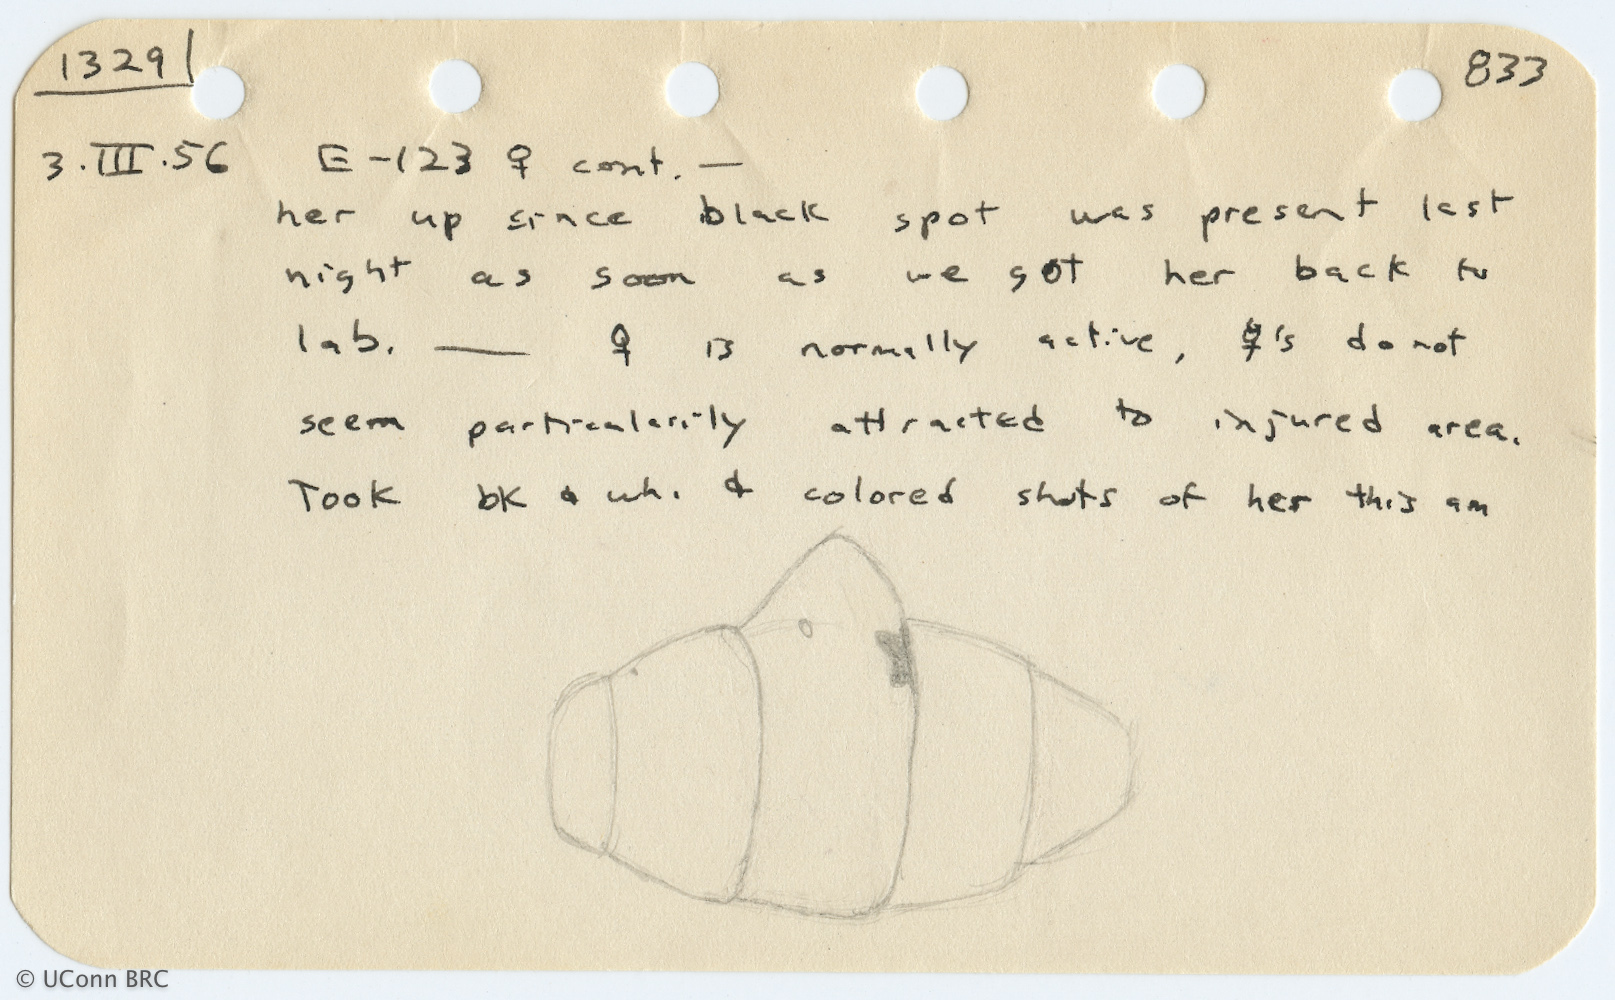 1329
833
3.III.56 E-123 ♀ cont. —
her up since black spot was present last
night as soon as we got her back to
lab. — ♀ is normally active, ☿'s do not
seem particularily attracted to injured area.
Took bk & wh. & colored shots of her this am
© UConn BRC